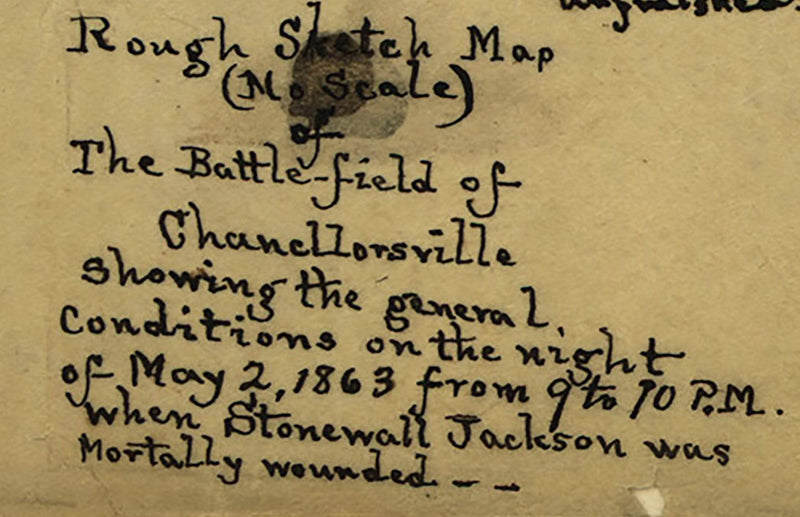 Unfinished.
Rough Sketch Map
(No Scale)
of
The Battle-field of
Chancellorsville
showing the general
conditions on the night
of May 2, 1863 from 9 to 10 P.M.
when Stonewall Jackson was
Mortally wounded - -